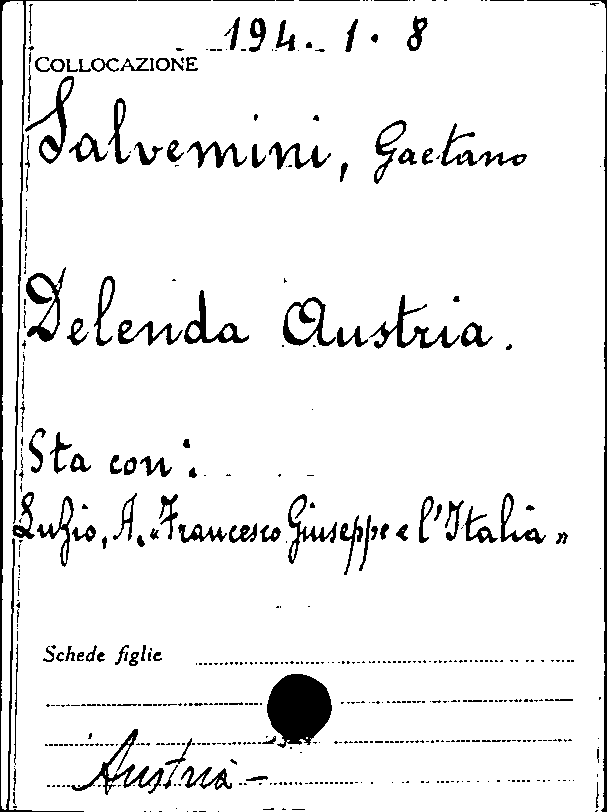 194. 1. 8
COLLOCAZIONE
Salvemini, Gaetano
Delenda Austria.
Sta con:
Luzio, A. "Francesco Giuseppe e l'Italia"
Schede figlie
Austria -